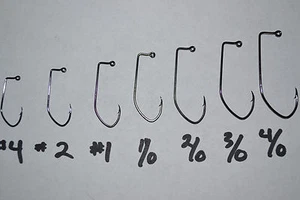 #4 #2 #1 1/0 2/0 3/0 4/0